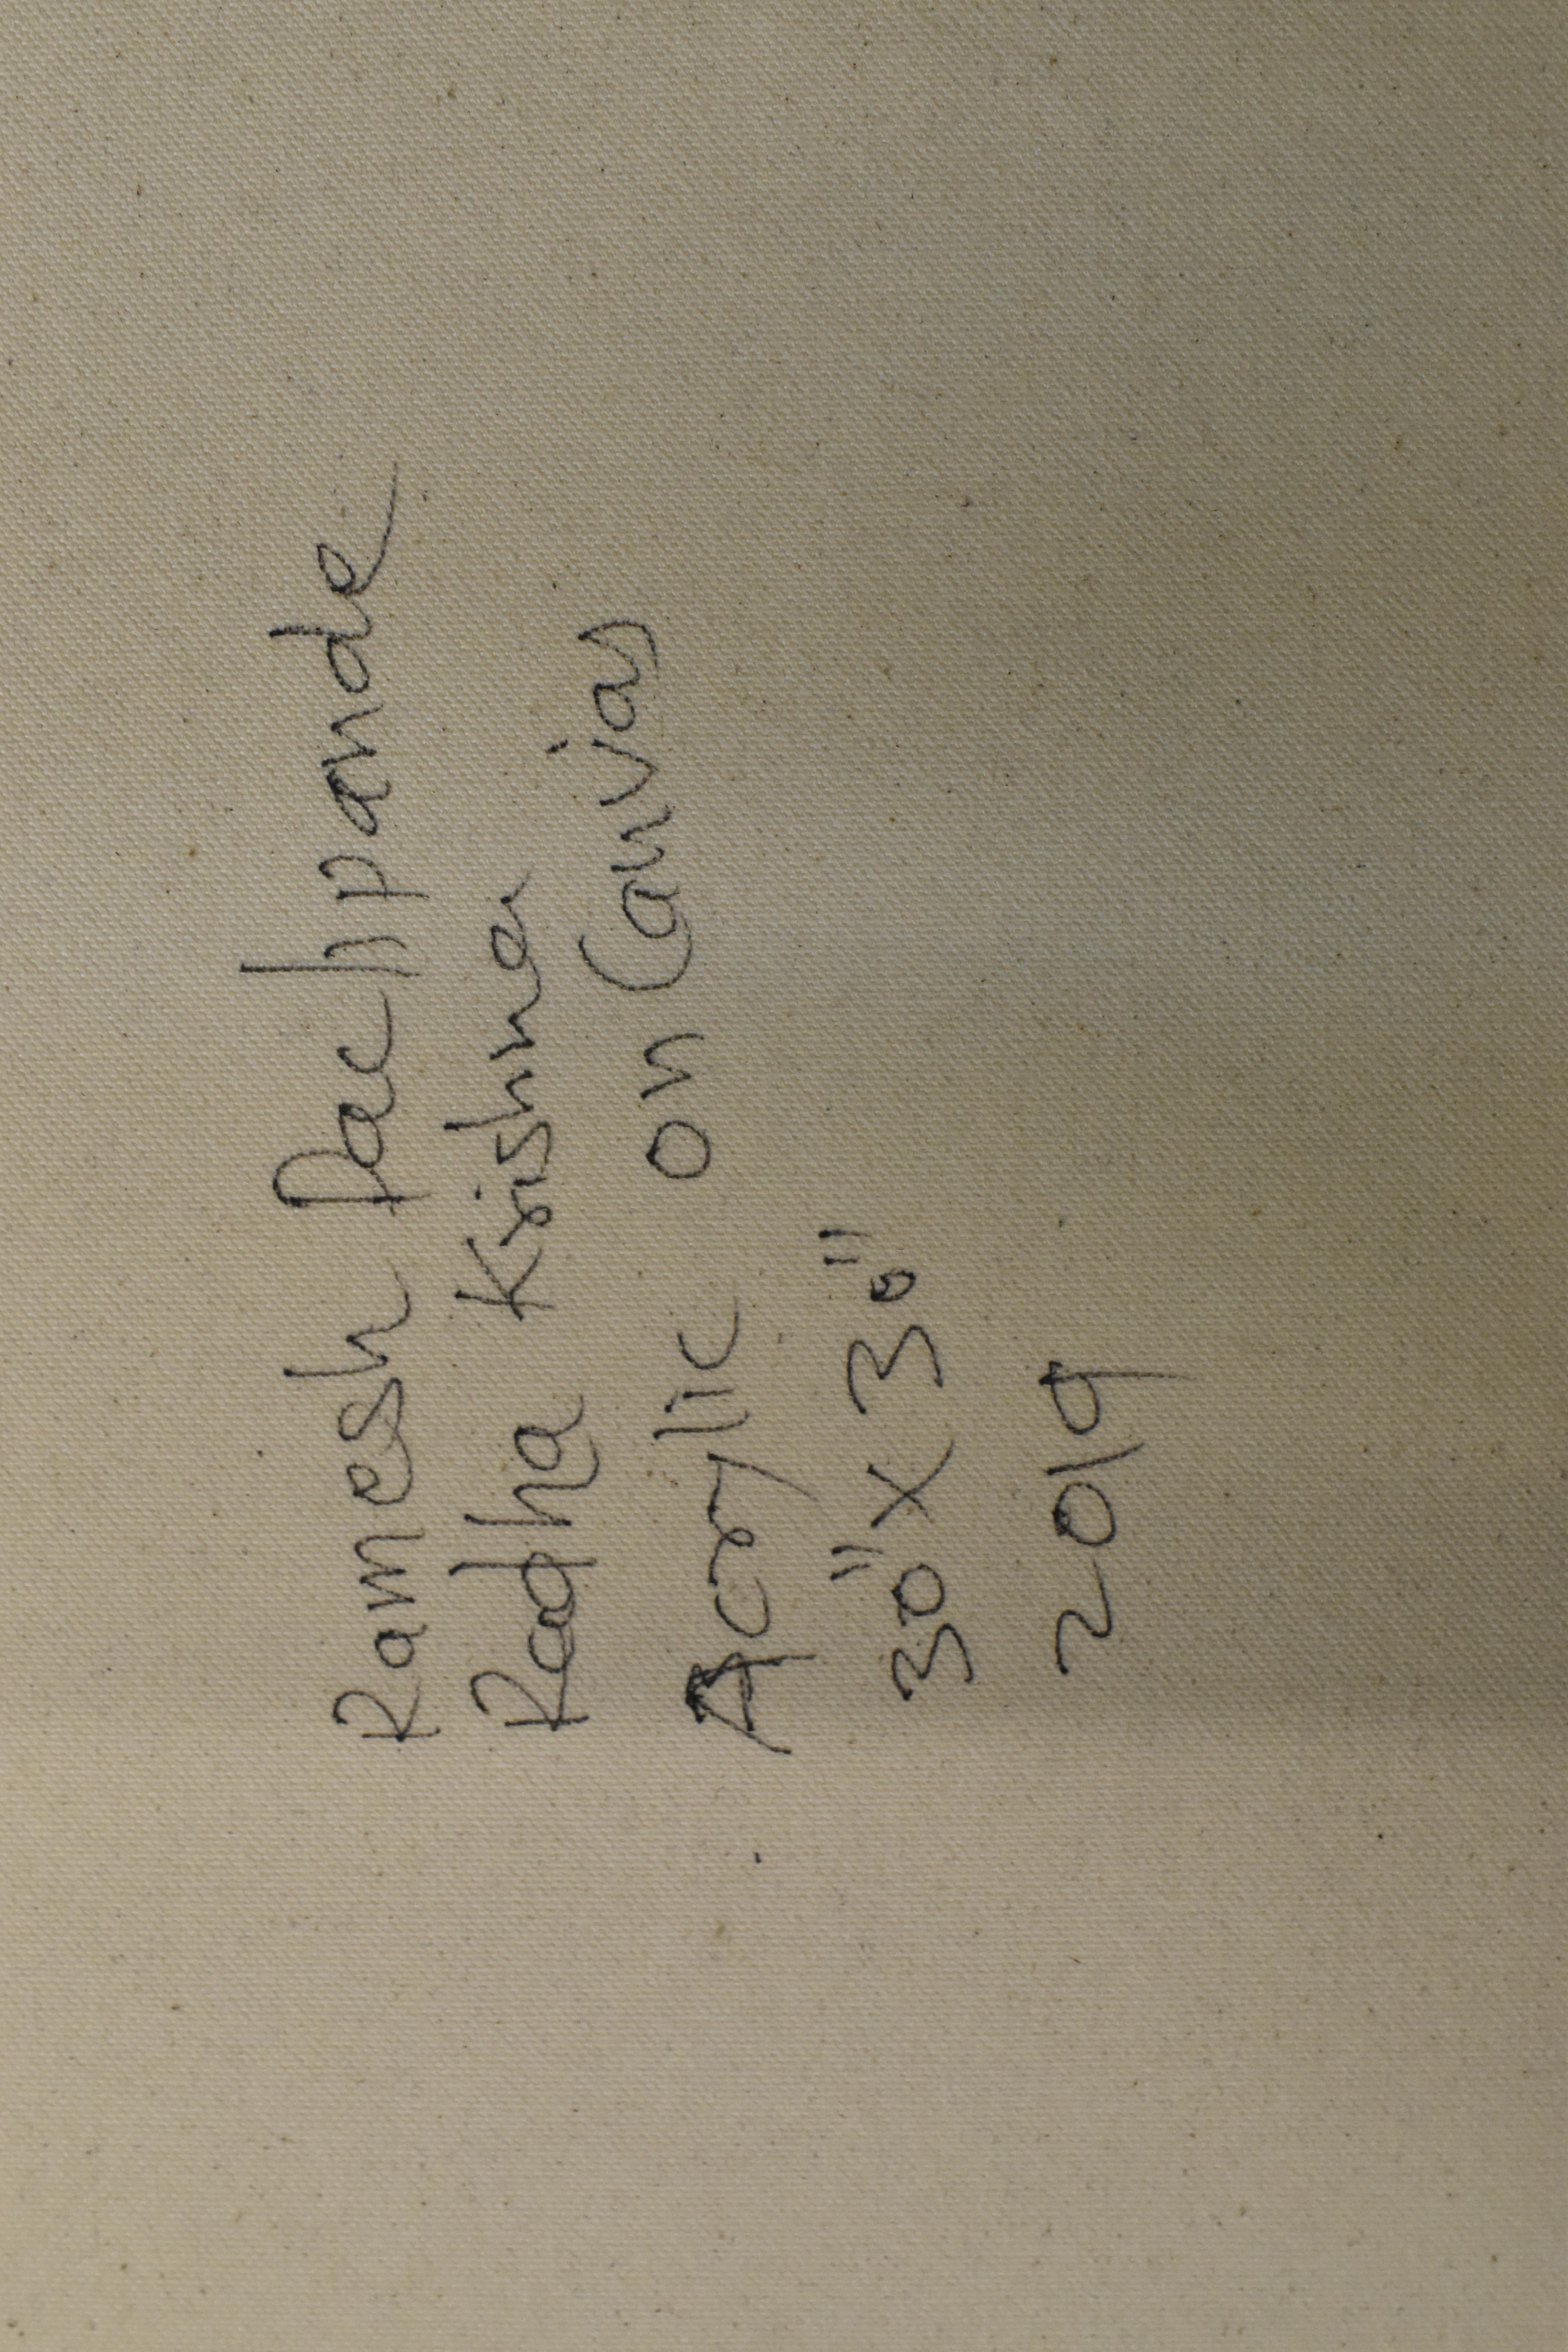 Ramesh Pachpande
Radha Krishna
Acrylic on Canvas
30" x 30"
2019